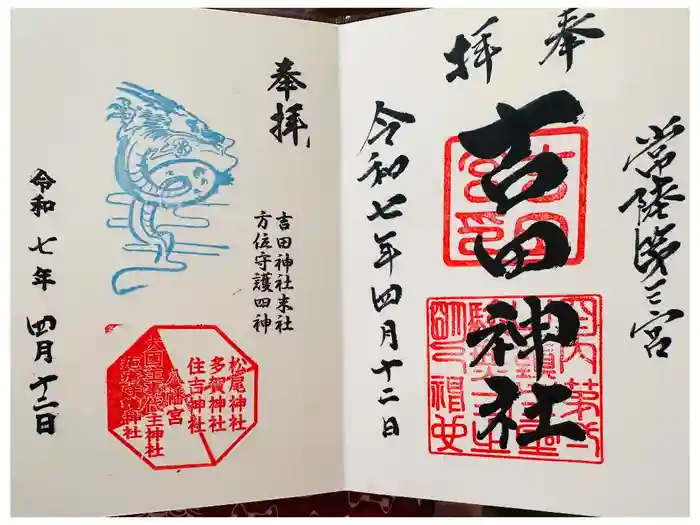 奉拝
常陸第三宮
吉田神社
令和七年四月十二日
奉拝
吉田神社末社
方位守護四神
令和七年四月十二日
松尾神社
多賀神社
住吉神社
八幡宮